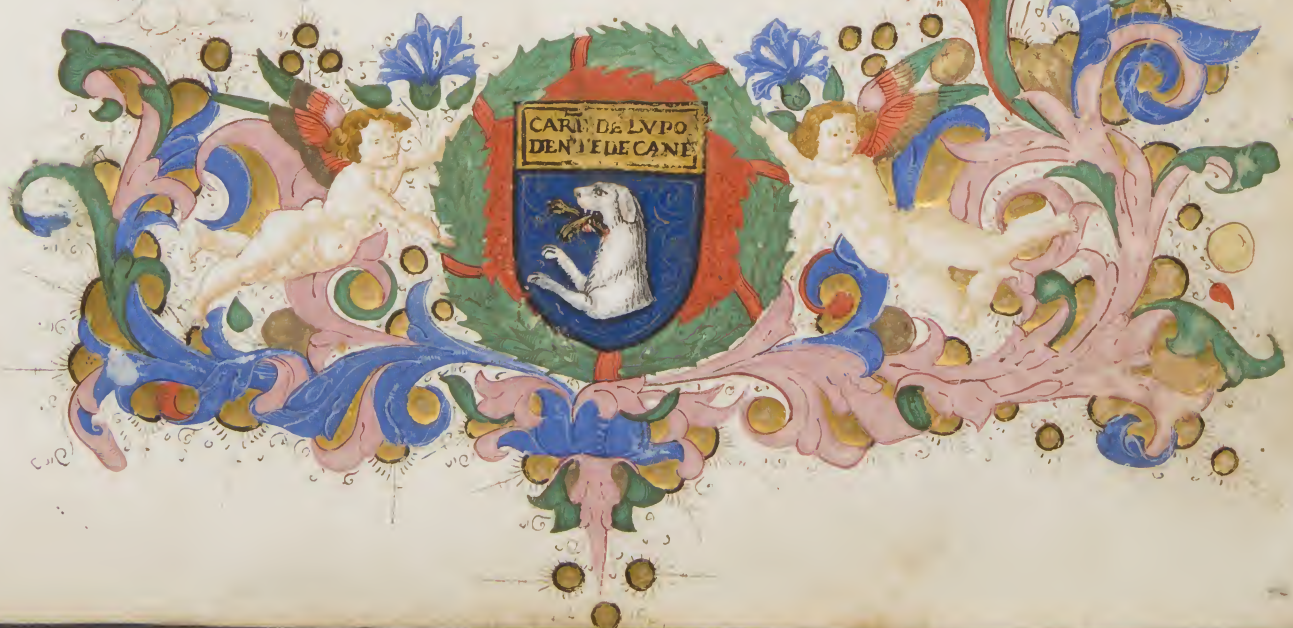 CARN̄ DE LVPO
DENTE DE CANE